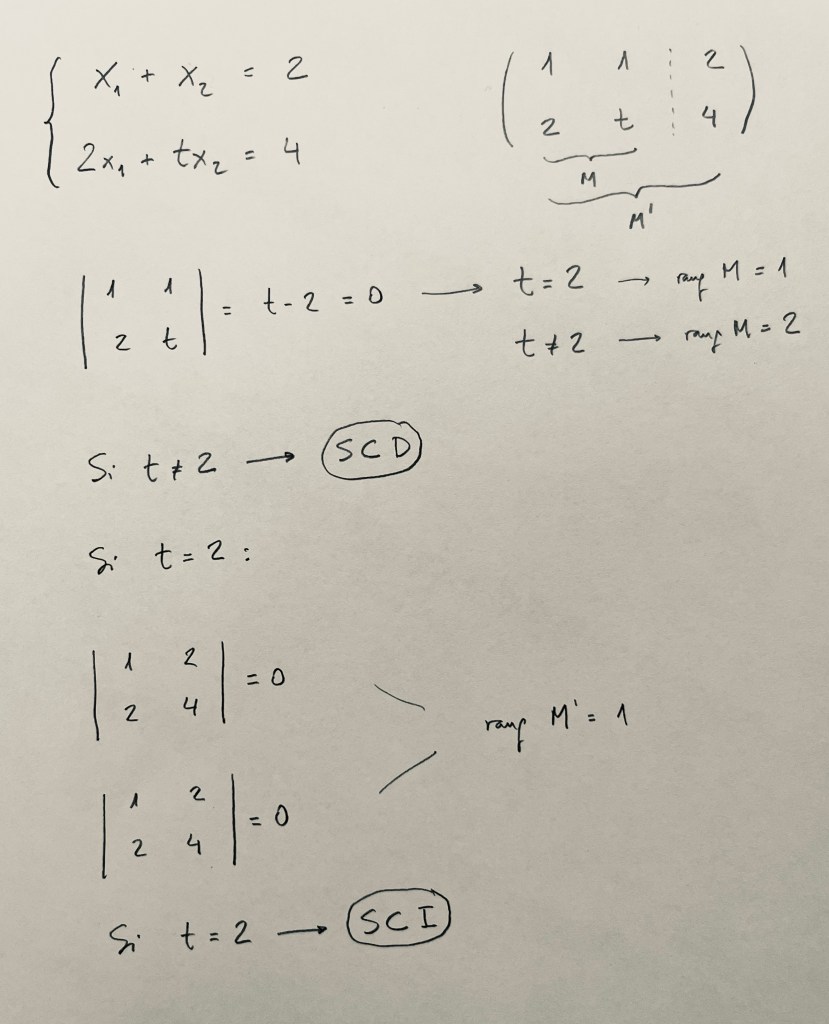 x₁ + x₂ = 2
2x₁ + tx₂ = 4
1 1 2
2 t 4
M
M'
| 1 1 |
| 2 t | = t - 2 = 0 → t = 2 → rang M = 1
t ≠ 2 → rang M = 2
Si t ≠ 2 → SCD
Si t = 2 :
| 1 2 |
| 2 4 | = 0
rang M' = 1
| 1 2 |
| 2 4 | = 0
Si t = 2 → SCI